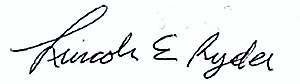 Lincoln E Ryder